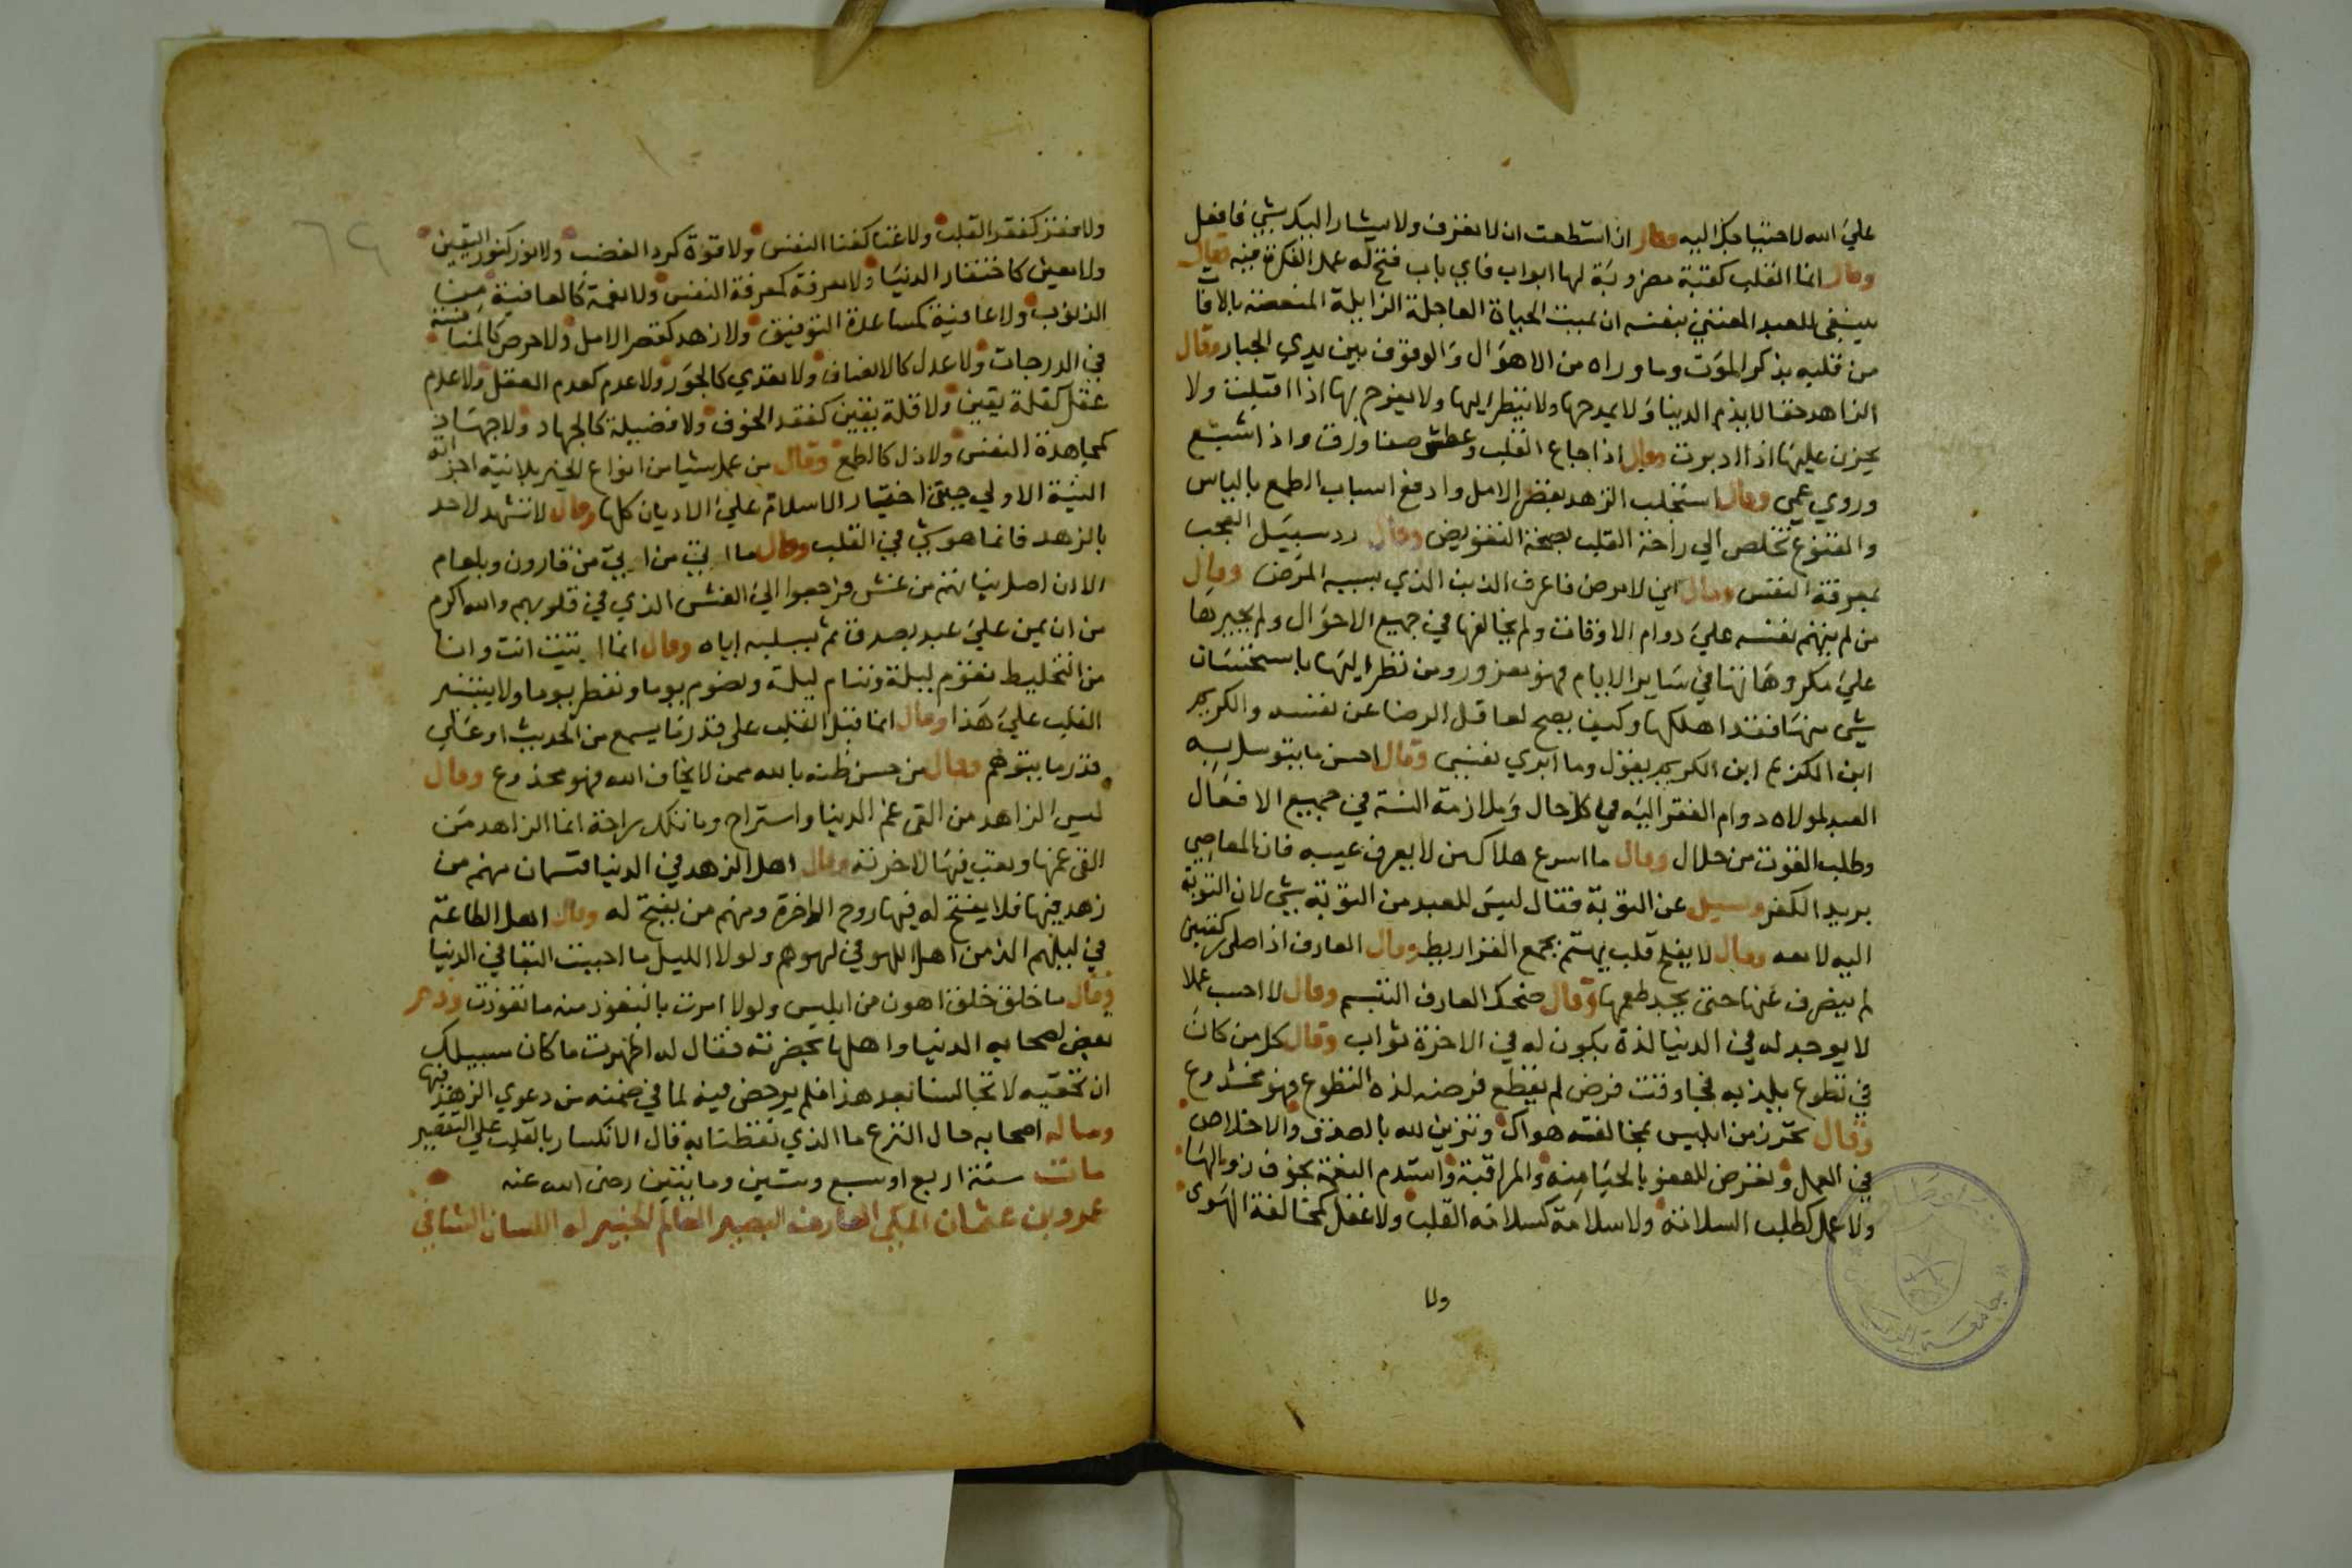 علي الله لاحتياجك اليه وقال ان استطعت ان لا تعرف ولا يشار اليك بشي فافعل
وقال انما القلب كقبة مضروبة لها ابواب فاي باب فتح له عمل الفكرة فيه وقال
ينبغي للعبد المعتني بنفسه ان يميت الحياة العاجلة الزايلة المنغصة بالافات
من قلبه بذكر الموت وما وراه من الاهوال والوقوف بين يدي الجبار وقال
الزاهد حقا لا يذم الدنيا ولا يمدحها ولا ينظر اليها ولا يفرح بها اذا اقبلت ولا
يحزن عليها اذا ادبرت وقال اذا جاع القلب وعطش صفا ورق واذا شبع
وروي عمي وقال استجلب الزهد بقصر الامل وادفع اسباب الطمع بالياس
والقنوع تخلص الي راحة القلب بصحة التفويض وقال رد سبيل العجب
بمعرفة النفس وقال اني لامرض فاعرف الذنب الذي بسببه المرض وقال
من لم يتهم نفسه علي دوام الاوقات ولم يخالفها في جميع الاحوال ولم يجبرها
علي مكروهاتها في ساير الايام فهو مغرور ومن نظر اليها باستحسان
شي منها فقد اهلكها وكيف يصح لعاقل الرضا عن نفسه والكريم
ابن الكريم ابن الكريم يقول وما ابري نفسي وقال احسن ما يتوسل به
العبد لمولاه دوام الفقر اليه في كل حال وملازمة السنة في جميع الافعال
وطلب القوت من حلال وقال ما اسرع هلاك من لا يعرف عيبه فان المعاصي
بريد الكفر وسيل عن التوبة فقال ليس للعبد من التوبة شي لان التوبة
اليه لا منه وقال لا يفلح قلب يهتم بجمع القراريط وقال العارف اذا صلي ركعتين
لم ينصرف عنها حتي يجد طعمها وقال ضحك العارف التبسم وقال لا احسب عملا
لا يوجد له في الدنيا لذة يكون له في الاخرة ثواب وقال كل من كان
في تطوع يلذ به فجا وقت فرض لم يقطع فرضه لذة التطوع فهو مخدوع
وقال تحرز من ابليس بمخالفة هواك وتزين لله بالصدق والاخلاص
في العمل وتعرض للعفو بالحيا منه والمراقبة واستدم النعمة بخوف زوالها
ولا عمل كطلب السلامة ولا سلامة كسلامة القلب ولا عقل كمخالفة الهوي
ولا
ولا فقر كفقر القلب ولا غنا كغنا النفس ولا قوة كرد الغضب ولا نور كنور اليقين
ولا يقين كاحتقار الدنيا ولا معرفة كمعرفة النفس ولا نعمة كالعافية من
الذنوب ولا عافية كمساعدة التوفيق ولا زهد كقصر الامل ولا حرص كالمنافسة
في الدرجات ولا عدل كالانصاف ولا تعدي كالجور ولا عدم كعدم العقل ولا عدم
عقل كقلة يقين ولا قلة يقين كفقد الخوف ولا فضيلة كالجهاد ولا جهاد
كمجاهدة النفس ولا ذل كالطمع وقال من عمل شيا من انواع الخير بلا نية اجزاته
النية الاولي حين اختيار الاسلام علي الاديان كلها وقال لا تشهد لاحد
بالزهد فانما هو شي في القلب وقال ما ابتلي من قارون وبلعام
الا ان اصل نياتهم من غش فرجعوا الي الغش الذي في قلوبهم والله اكرم
من ان يمن علي عبد بصدق ثم يسلبه اياه وقال انما انت وانا
من التخليط نقوم ليلة وننام ليلة ونصوم يوما ونفطر يوما ولا يستنير
القلب علي هذا وقال انما القلب علي قدر ما يسمع من الحديث او علي
قدر ما يتوهم وقال من حسن ظنه بالله ممن لا يخاف الله فهو مخدوع وقال
ليس الزاهد من القي غم الدنيا واستراح وانما تلك راحة انما الزاهد من
القي غمها وتعب فيها لاخرته وقال اهل الزهد في الدنيا قسمان منهم من
زهد فيها فلا يفتح له فيها روح الاخرة ومنهم من يفتح له وقال اهل الطاعة
في ليلهم الذ من اهل اللهو في لهوهم ولولا الليل ما احببت البقا في الدنيا
وقال ما خلق خلقا اهون من ابليس ولولا امرت بالتعوذ منه ما تعوذت وذم
بعض اصحابه الدنيا واهلها بحضرته فقال له اظهرت ما كان سبيلك
ان تخفيه لا تجالسنا بعد هذا فلم يرخص فيه لما في ضمنه من دعوي الزهد فيها
وساله اصحابه حال النزع ما الذي تعظنا به قال الانكسار بالقلب علي التقصير
مات سنة اربع او سبع وستين ومايتين رضي الله عنه
عمرو بن عثمان المكي العارف البصير العالم الخبير له اللسان الشافي